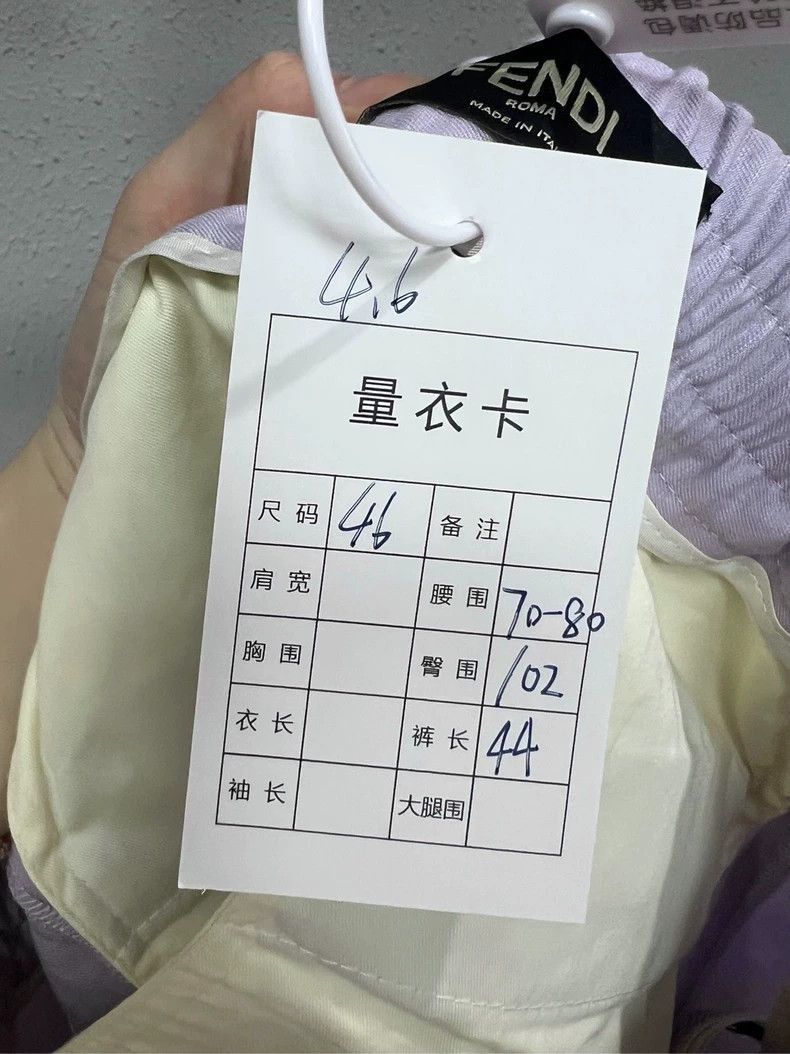 品防调包
FENDI
ROMA
MADE IN ITA
4.6
量衣卡
尺码 46 备注
肩宽 腰围 70-80
胸围 臀围 102
衣长 裤长 44
袖长 大腿围